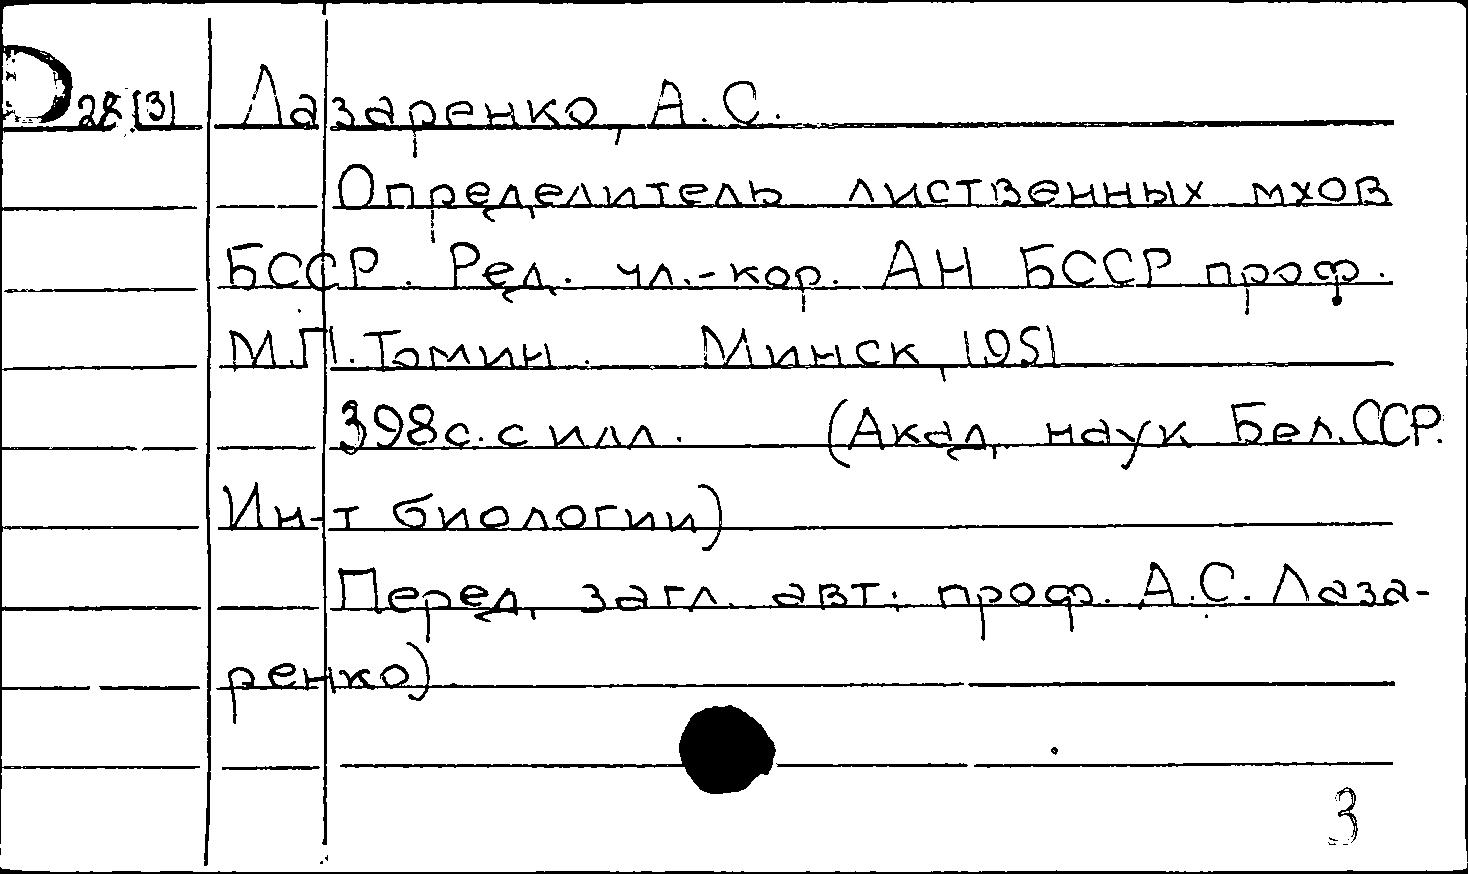 D 28(3) Лазаренко, А.С.
Определитель лиственных мхов
БССР. Ред. чл.-кор. АН БССР проф.
М.П. Томин. Минск, 1951
398с. с илл. (Акад. наук Бел.ССР.
Ин-т биологии)
Перед. загл. авт: проф. А.С. Лаза-
ренко).
3